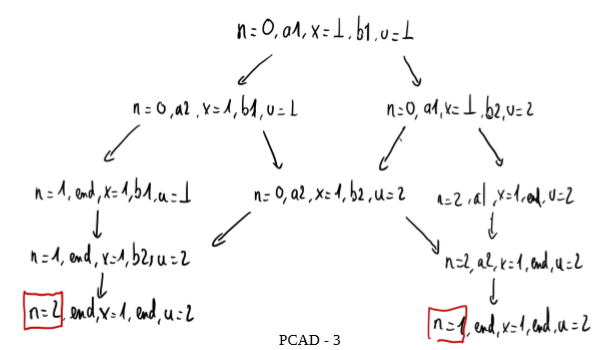 n=0, a1, x=⊥, b1, u=⊥
n=0, a2, x=1, b1, u=⊥
n=0, a1, x=⊥, b2, u=2
n=1, end, x=1, b1, u=⊥
n=0, a2, x=1, b2, u=2
n=2, a1, x=1, end, u=2
n=1, end, x=1, b2, u=2
n=2, a2, x=1, end, u=2
n=2, end, x=1, end, u=2
n=1, end, x=1, end, u=2
PCAD - 3